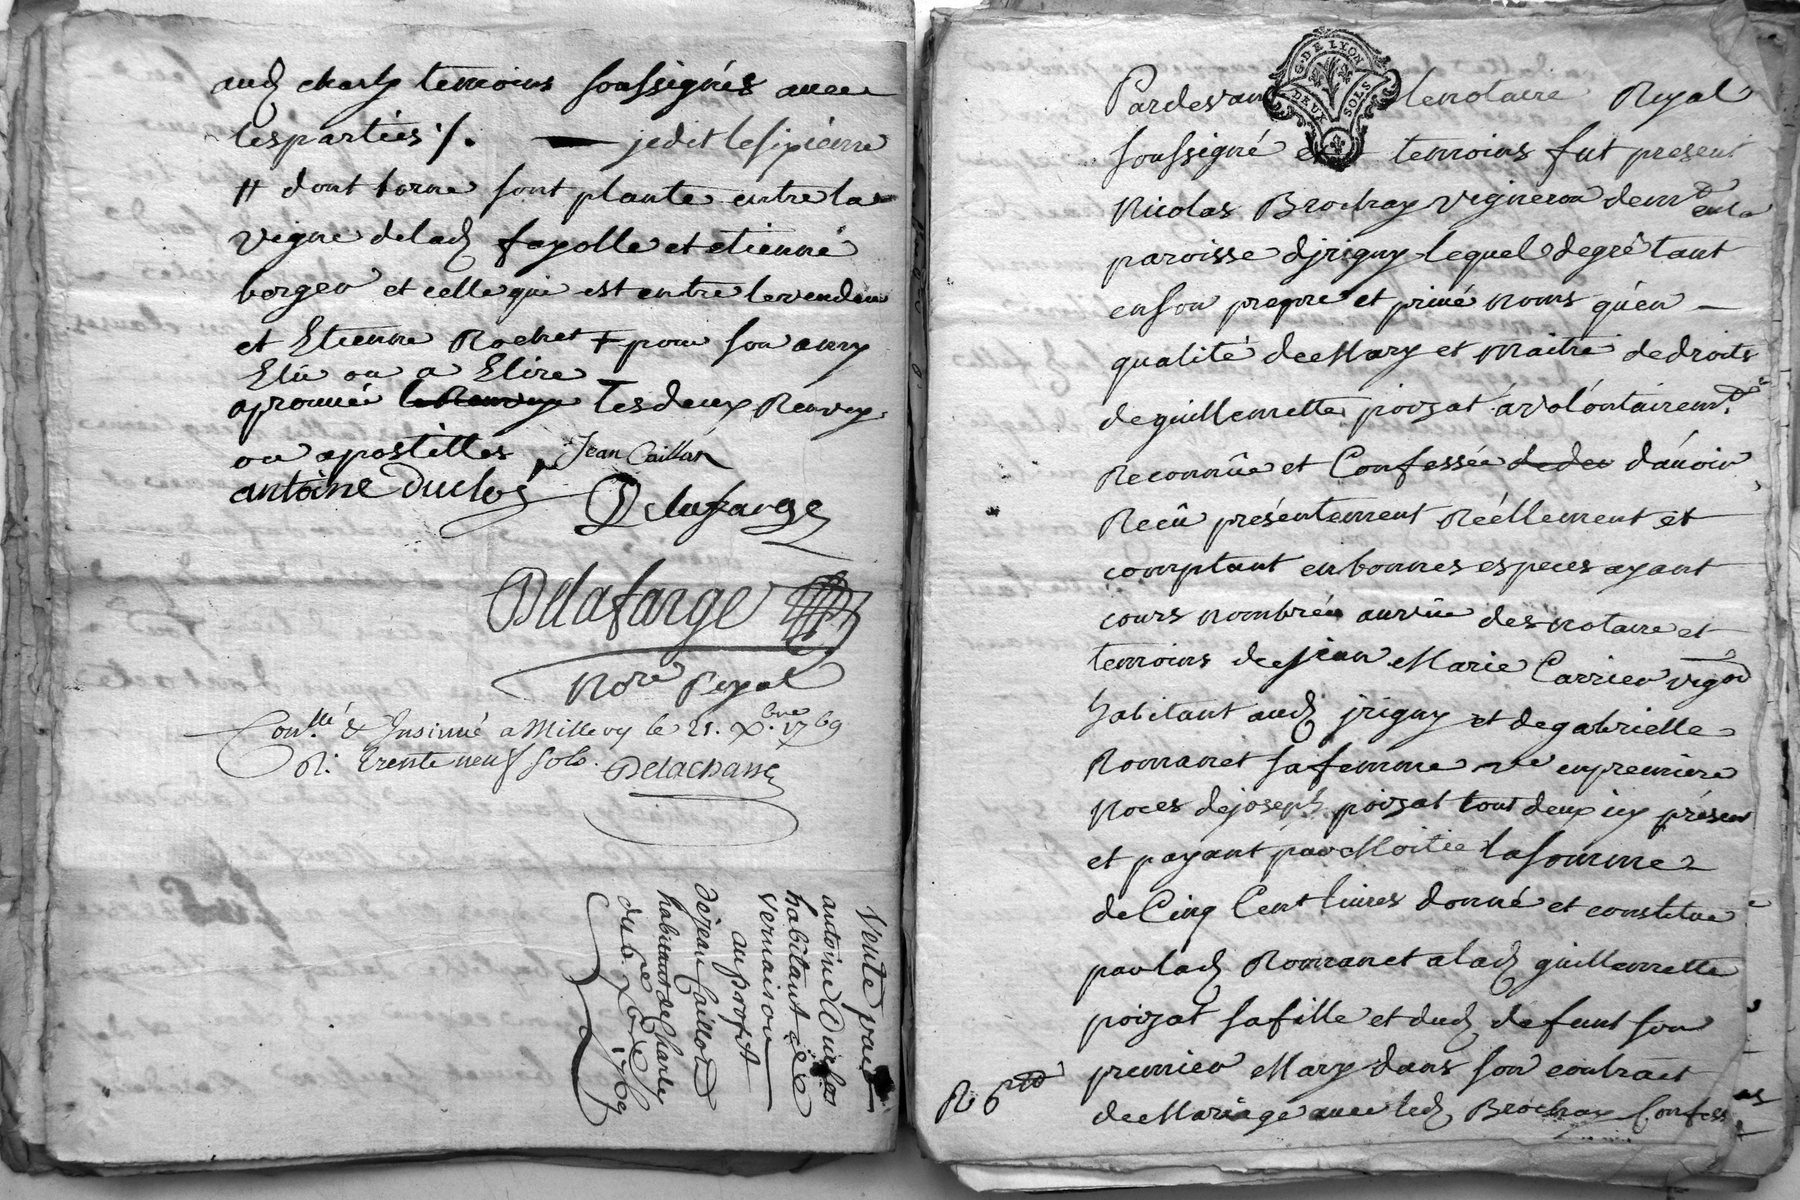 aud charly temoins soussignés avec
les parties ./. — je dit le sixieme
# dont borne sont plante entre la
vigne de lad fayolle et etienne
borgeu et celle qui est entre le vendeur
et Etienne Rochet + pour son amy
Elü ou a Elire
aprouvé les deux Renvoy
ou apostilles Jean Caillot
antoine Duclos
Delafarge
Delafarge
Nore Royal
Con.llé & Insinué a Millery le 21. Xbre 1769
R. trente neuf sols. Delachasse
Vente par
antoine Duclos
habitant de
vernaison
au profit
de jean Caillot
habitant de Charly
du 6e Xbre 1769
G. DE LYON
DEUX SOLS
Pardevant le notaire Royal
soussigné et temoins fut present
Nicolas Brochay vigneron demt en la
paroisse djrigny lequel de gré tant
en son propre et privé noms qu'en —
qualité de Mary et maitre de droits
de guillemette poizat a volontairemt
Reconnüe et Confessée d'avoir
Reçû présentement Réellement et
comptant en bonnes especes ayant
cours nombrée au vüe des notaire et
temoins de jean Marie Carrier vigon
habitant aud jrigny et de gabrielle
Romanet sa femme ve en premiere
Noces de joseph poizat tout deux icy présent
et payant par Moitié la somme
de Cinq Cent livres donné et constitue
par lad Romanet a lad guillemette
poizat sa fille et dud defunt son
premier Mary dans son contract
de Mariage avec led Brochay Confess